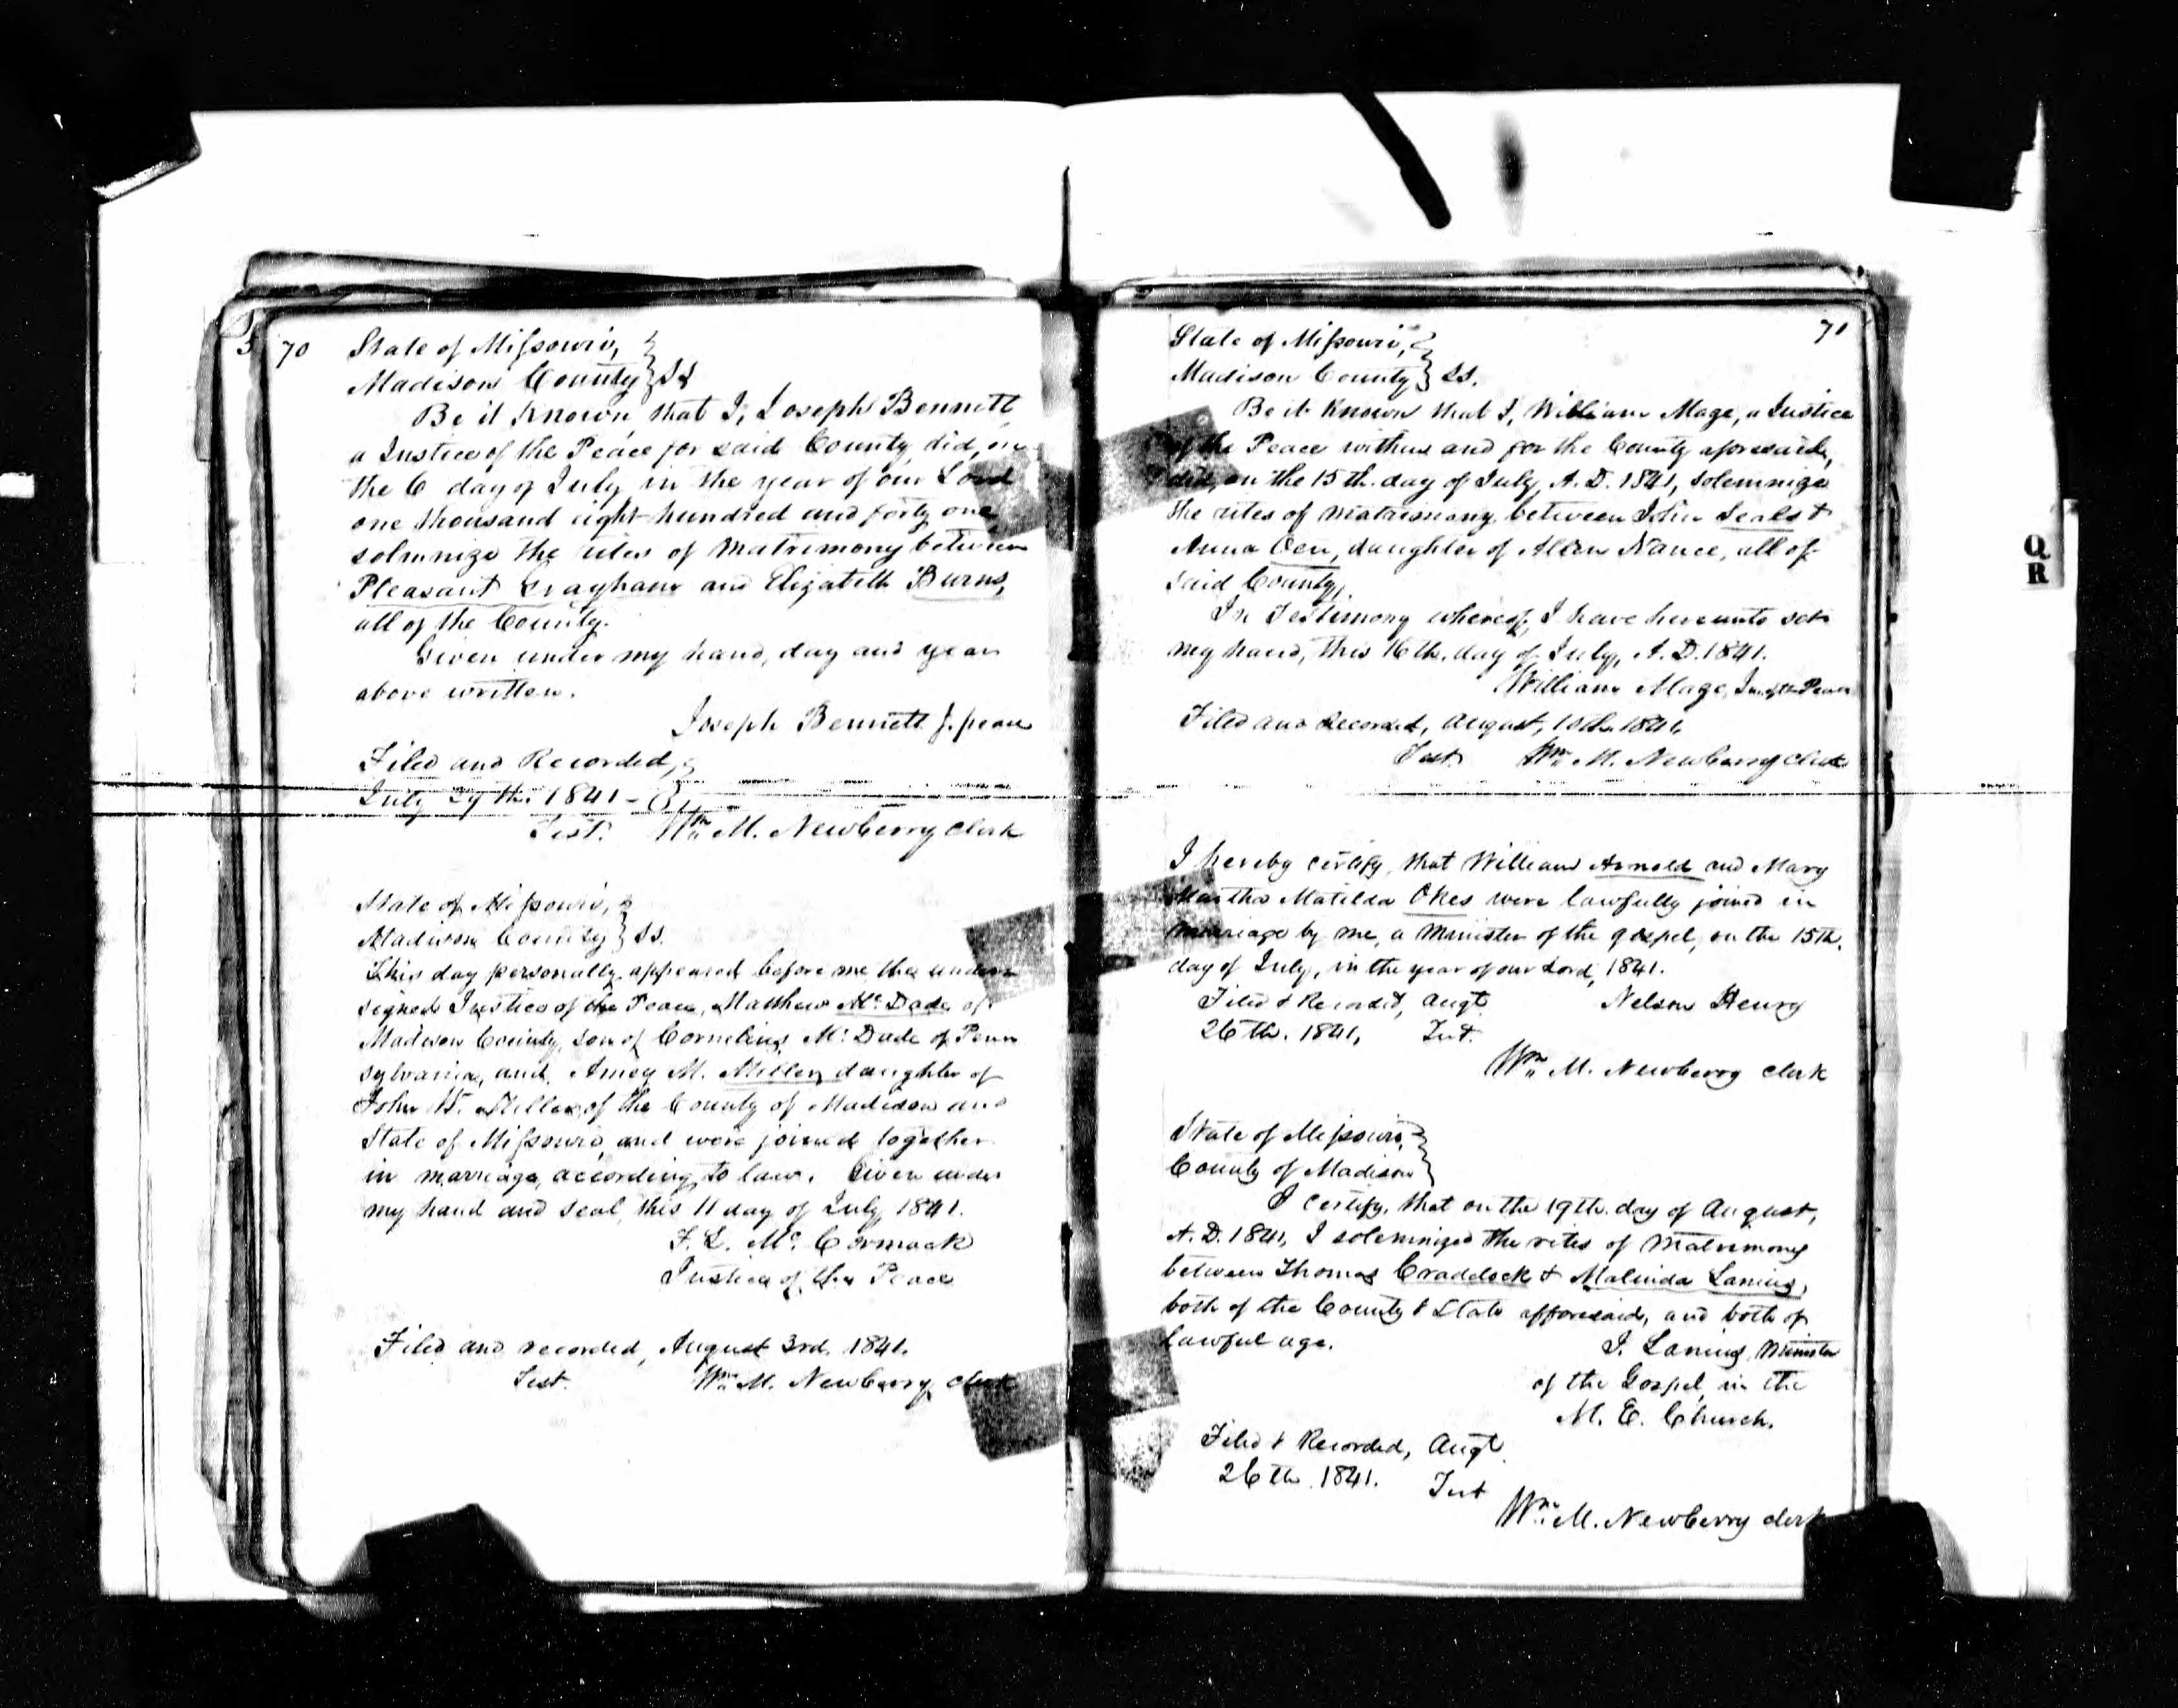 70
State of Missouri,
Madison County } SS
Be it Known, that I, Joseph Bennett
a Justice of the Peace for said County, did, on
the 6 day of July in the year of our Lord
one thousand eight hundred and forty one,
solmnize the rites of Matrimony between
Pleasant and Elizabeth Burns,
all of the County.
Given under my hand, day and year
above written.
Joseph Bennett J. peace
Filed and Recorded,
July 29th. 1841-
Test. Wm M. Newberry Clerk
State of Missouri,
Madison County } SS.
This day personally appeared before me the under
signed Justice of the Peace, Matthew McDade of
Madison County, son of Cornelius McDade of Penn
sylvania, and, M. Miller daughter of
John Miller of the County of Madison and
State of Missouri, and were joined together
in marriage, according to law. Given under
my hand and seal, this 11 day of July 1841.
F. L. McCormack
Justice of the Peace
Filed and recorded, August 3rd. 1841.
Test. Wm M. Newberry, clerk
71
State of Missouri,
Madison County } SS.
Be it Known that I, William Mage, a Justice
of the Peace within and for the County aforesaid,
did, on the 15th. day of July, A. D. 1841, solemnize
the rites of matrimony between John Seals &
Anna daughter of Allen Nance, all of
said County.
In Testimony whereof, I have hereunto set
my hand, this 16th. day of July, A. D. 1841.
William Mage, Jus. of the Peace
Filed and Recorded, August, 10th 1841,
Test Wm M. Newberry Clerk
I hereby certify, that William Arnold and Mary
Martha Matilda Okes were lawfully joined in
marriage by me, a Minister of the gospel, on the 15th.
day of July, in the year of our Lord, 1841.
Filed & Recorded, Augt. Nelson Henry
26th. 1841, Test.
Wm M. Newberry Clerk
State of Missouri,
County of Madison }
I certify, that on the 19th. day of August,
A. D. 1841, I solemnized the rites of Matrimony
between Thomas Craddock & Malinda Lanius,
both of the County & State afforesaid, and both of
lawful age.
J. Lanius, Minister
of the Gospel, in the
M. E. Church.
Filed & Recorded, Augt.
26th. 1841. Test
Wm M. Newberry clerk
Q
R